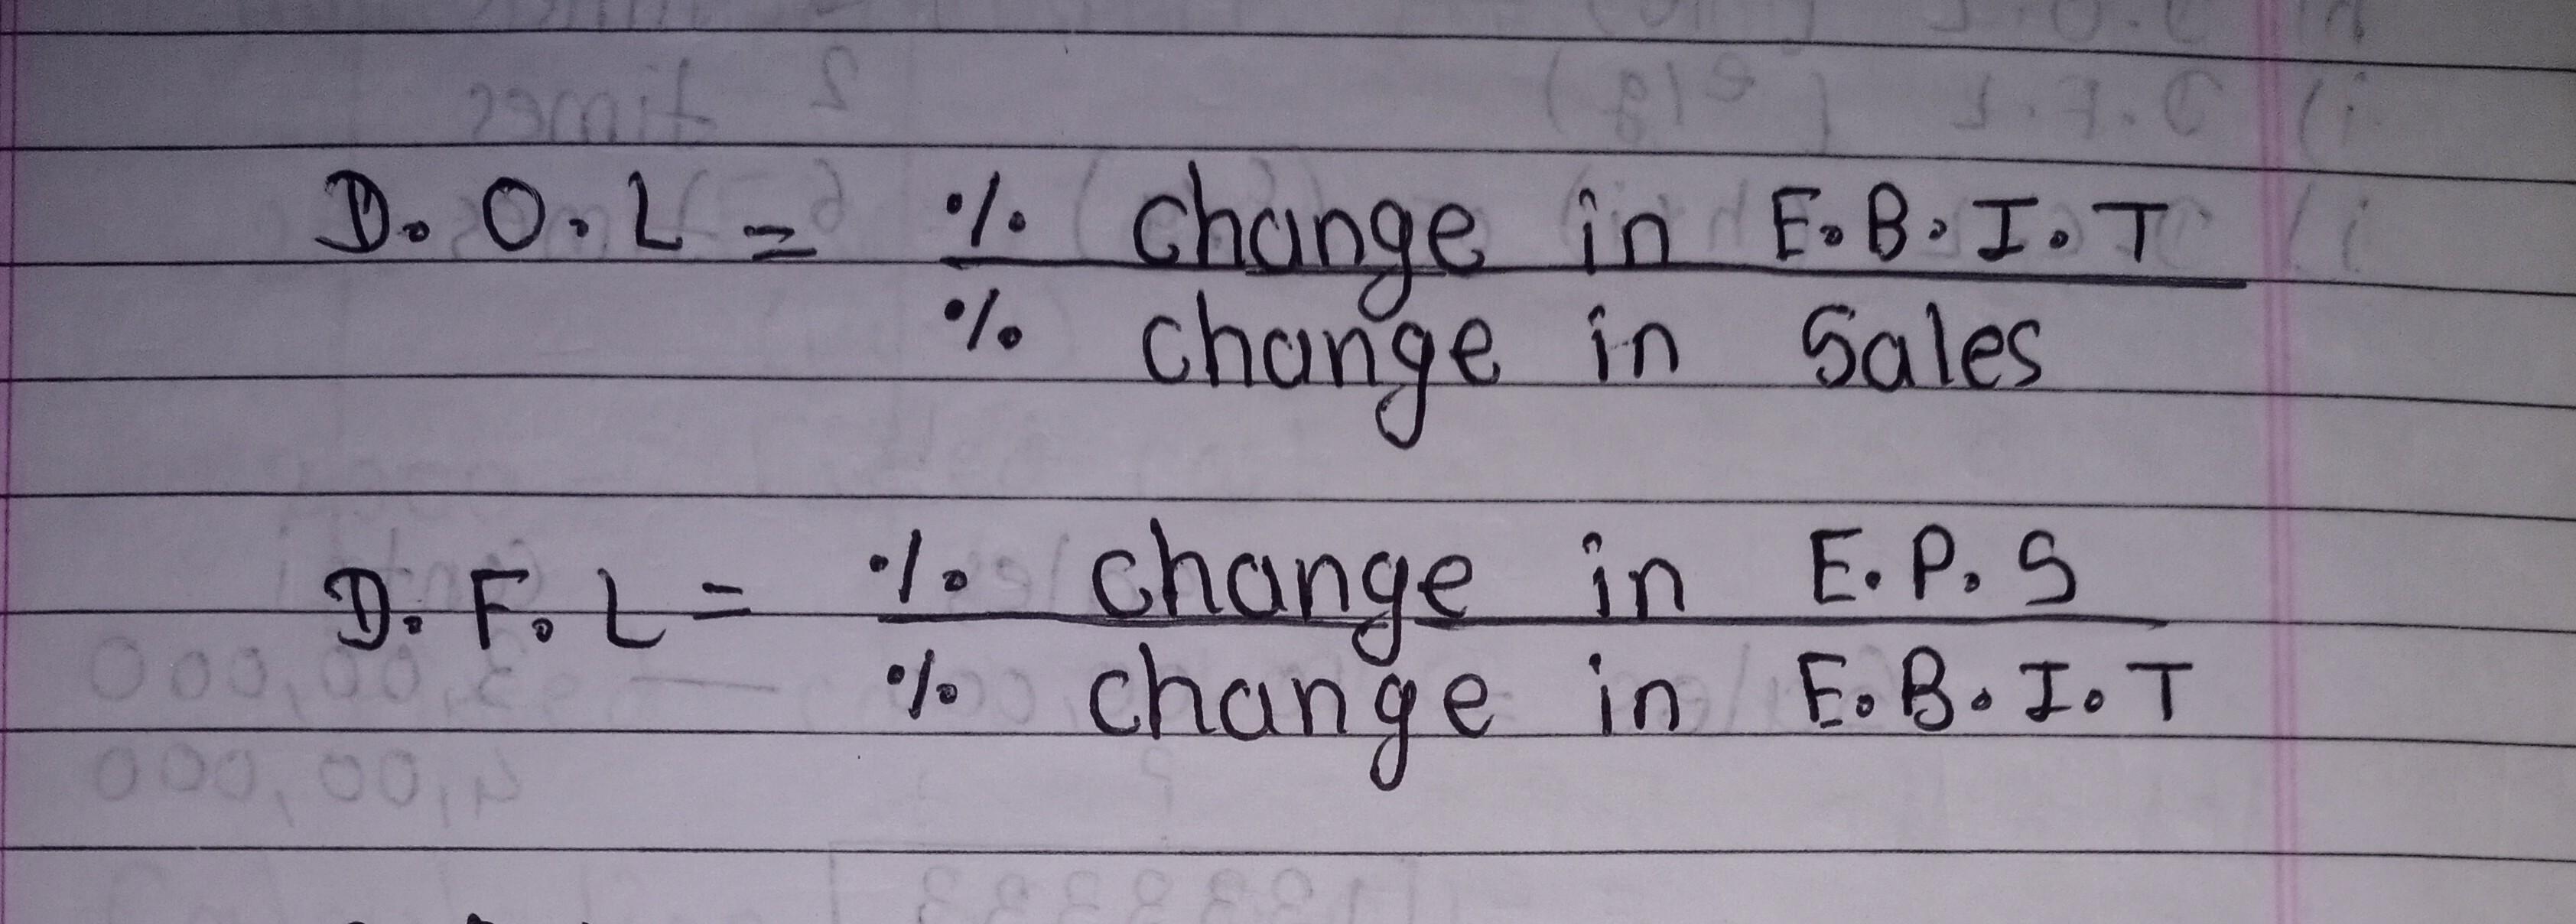 D.O.L = % change in E.B.I.T
% change in Sales
D.F.L = % change in E.P.S
% change in E.B.I.T